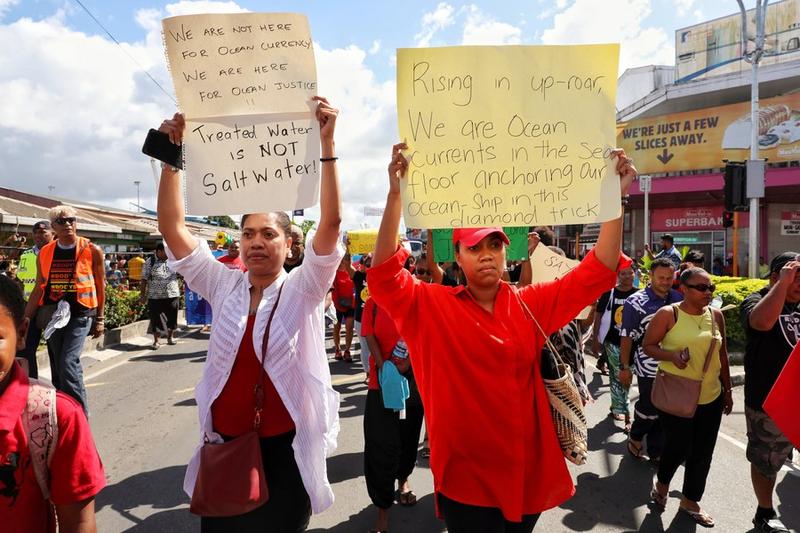 WE ARE NOT HERE
FOR OCEAN CURRENCY
WE ARE HERE
FOR OCEAN JUSTICE
!!
Treated Water
is NOT
Salt Water!
Rising in up-roar,
We are Ocean
Currents in the Sea
floor anchoring Our
Ocean-Ship in this
diamond trick
WE'RE JUST A FEW
SLICES AWAY.
SUPERBAK